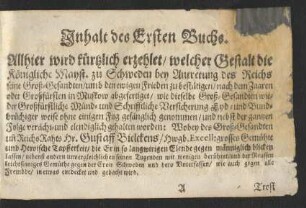 Inhalt des Ersten Buchs.
Allhier wird kürtzlich erzehlet / welcher Gestalt die
Königliche Mayst. zu Schweden bey Antretung des Reichs
seine Groß-Gesandten / umb den ewigen Frieden zu bestätigen / nach dem Zaaren
oder Großfürsten in Mußkow abgefertiget / wie dieselbe Groß-Gesandten wider
Großfürstliche Mund- und Schrifftliche Versicherung Eyd- und Bund-
brüchiger weise ohne einigen Fug gefänglich genommen / und nebst der gantzen
Folge verächt- und elendiglich gehalten worden: Wobey des Groß-Gesandten
und Reichs Raths Hr. Gustaff Bielckens / Hochsel. Excell. grosses Gemüthe
und Heroische Tapfferkeit / die Er in so langwieriger Elende gegen männiglich blicken
lassen / nebenst andern
Gemüthe gegen der Cron Schweden und dero
entdecket und gedacht wird.
A Trost